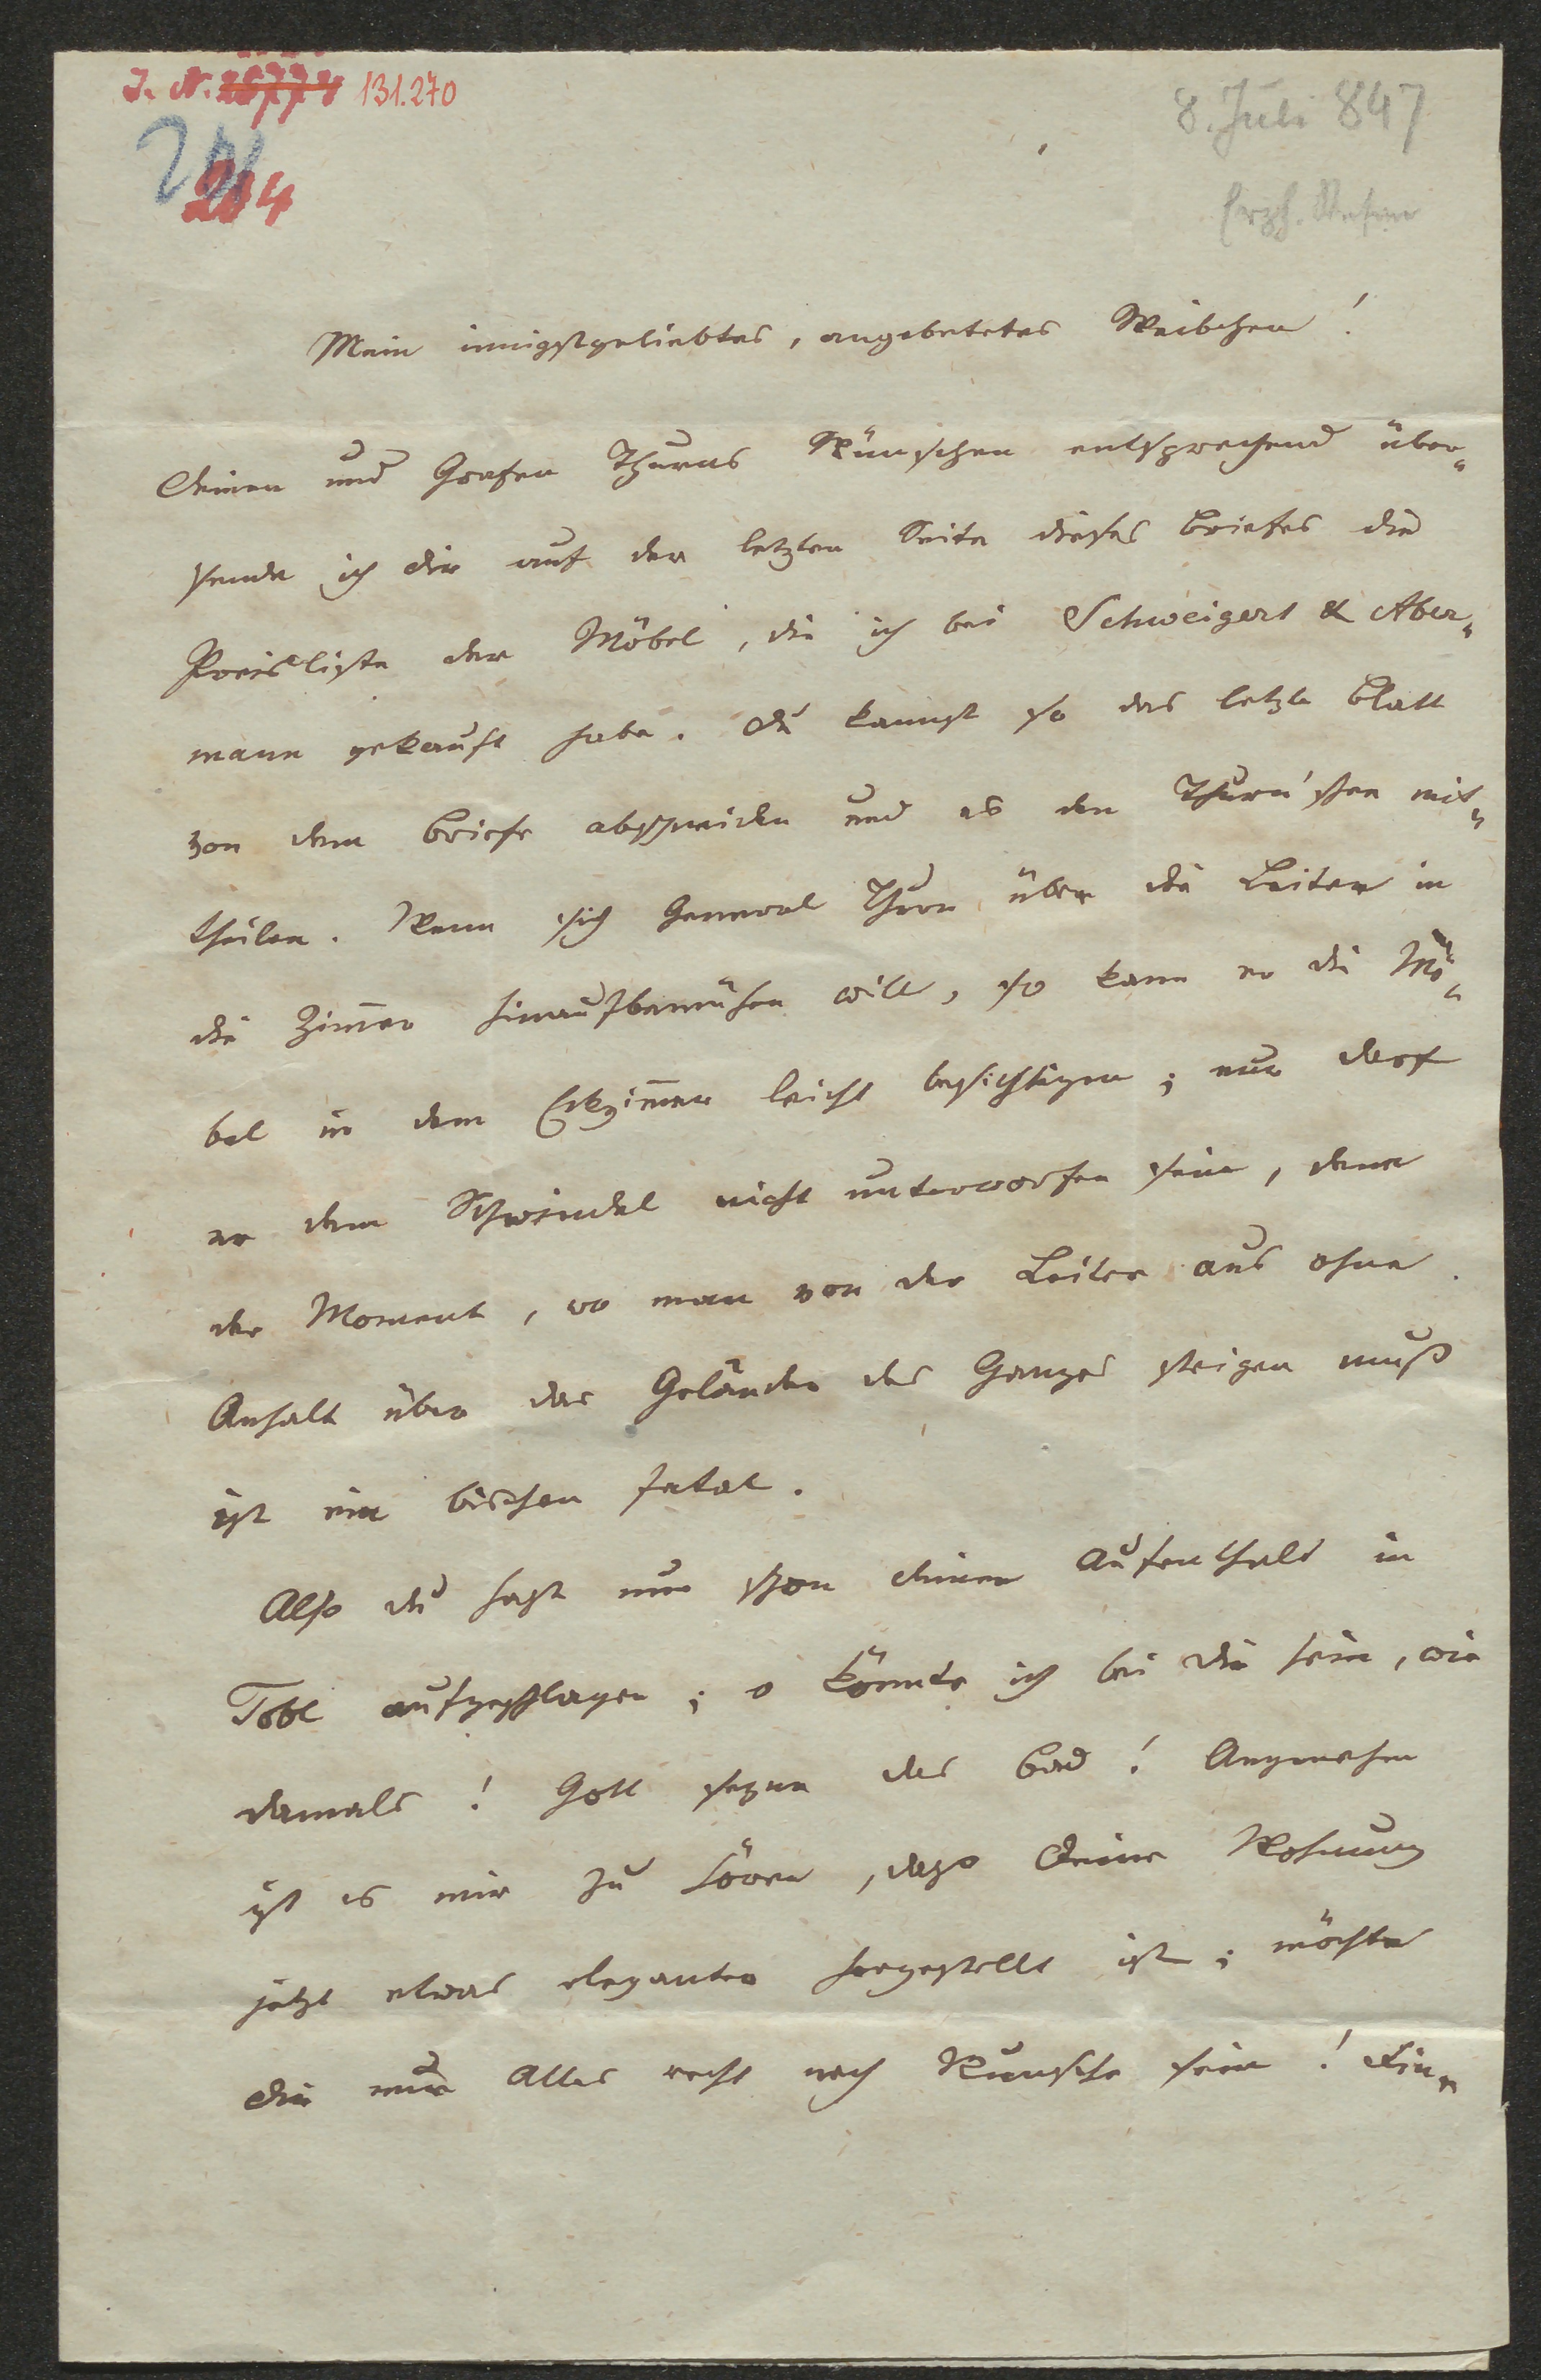 J. N. 131.270
8. Juli 847
204
Erzh. Stefan
Mein innigstgeliebtes, angebetetes Weibchen!
Deinen und Grafen Thurns Wünschen entsprechend über-
sende ich dir auf der letzten Seite dieses Briefes die
Preisliste der Möbel, die ich bei Schweigert & Aber-
mann gekauft habe. Du kannst so das letzte Blatt
von dem Briefe abschneiden und es den Thurn'schen mit-
theilen. Wenn sich General Thurn über die Leiter in
die Zimmer hinaufbemühen will, so kann er die Mö-
bel in dem Eckzimmer leicht besichtigen; nur darf
er dem Schwindel nicht unterworfen sein, denn
der Moment, wo man von der Leiter aus ohne
Anhalt über das Geländer des Ganges steigen muß
ist ein bischen fatal.
Also du hast nun schon deinen Aufenthalt in
Tobl aufgeschlagen; o könnte ich bei dir sein, wie
damals! Gott segne das Bad! Angenehm
ist es mir zu hören, dass Deine Wohnung
jetzt etwas eleganter hergestellt ist; möchte
dir nur Alles recht nach Wunsche sein!